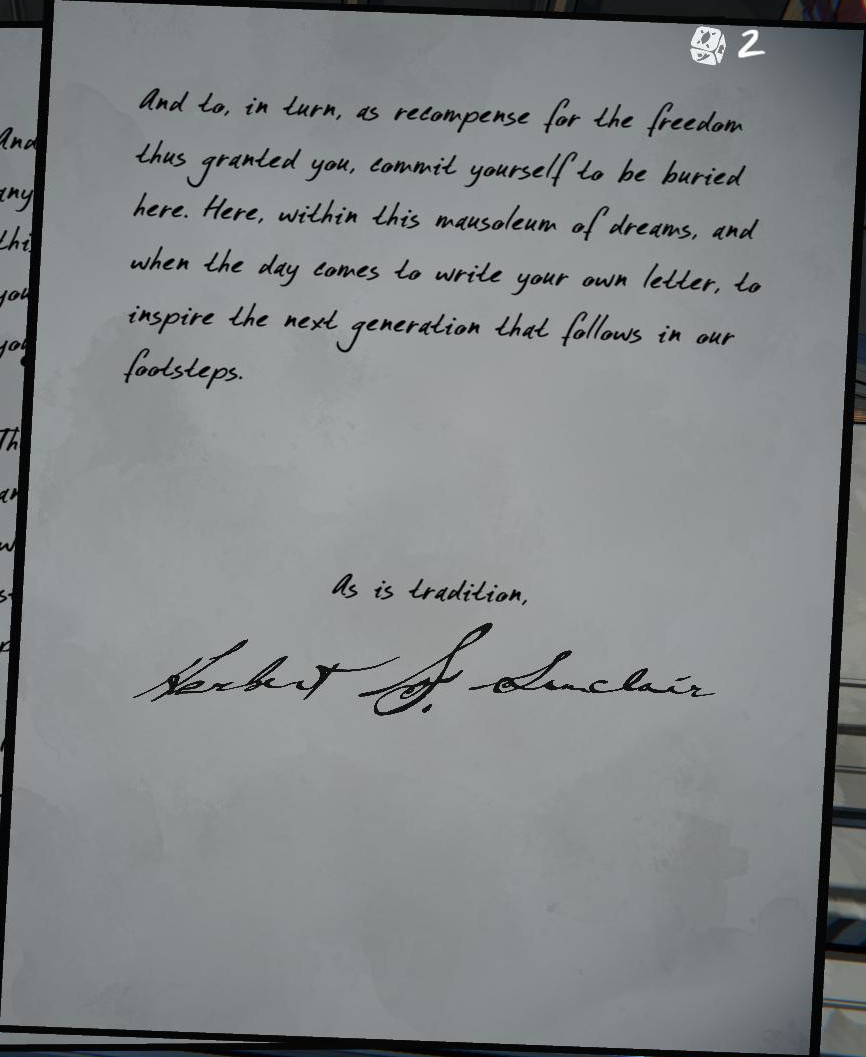 2
And to, in turn, as recompense for the freedom
thus granted you, commit yourself to be buried
here. Here, within this mausoleum of dreams, and
when the day comes to write your own letter, to
inspire the next generation that follows in our
footsteps.
As is tradition,
Herbert S. Sinclair
And
any
thi
you
you
Th
an
w
st